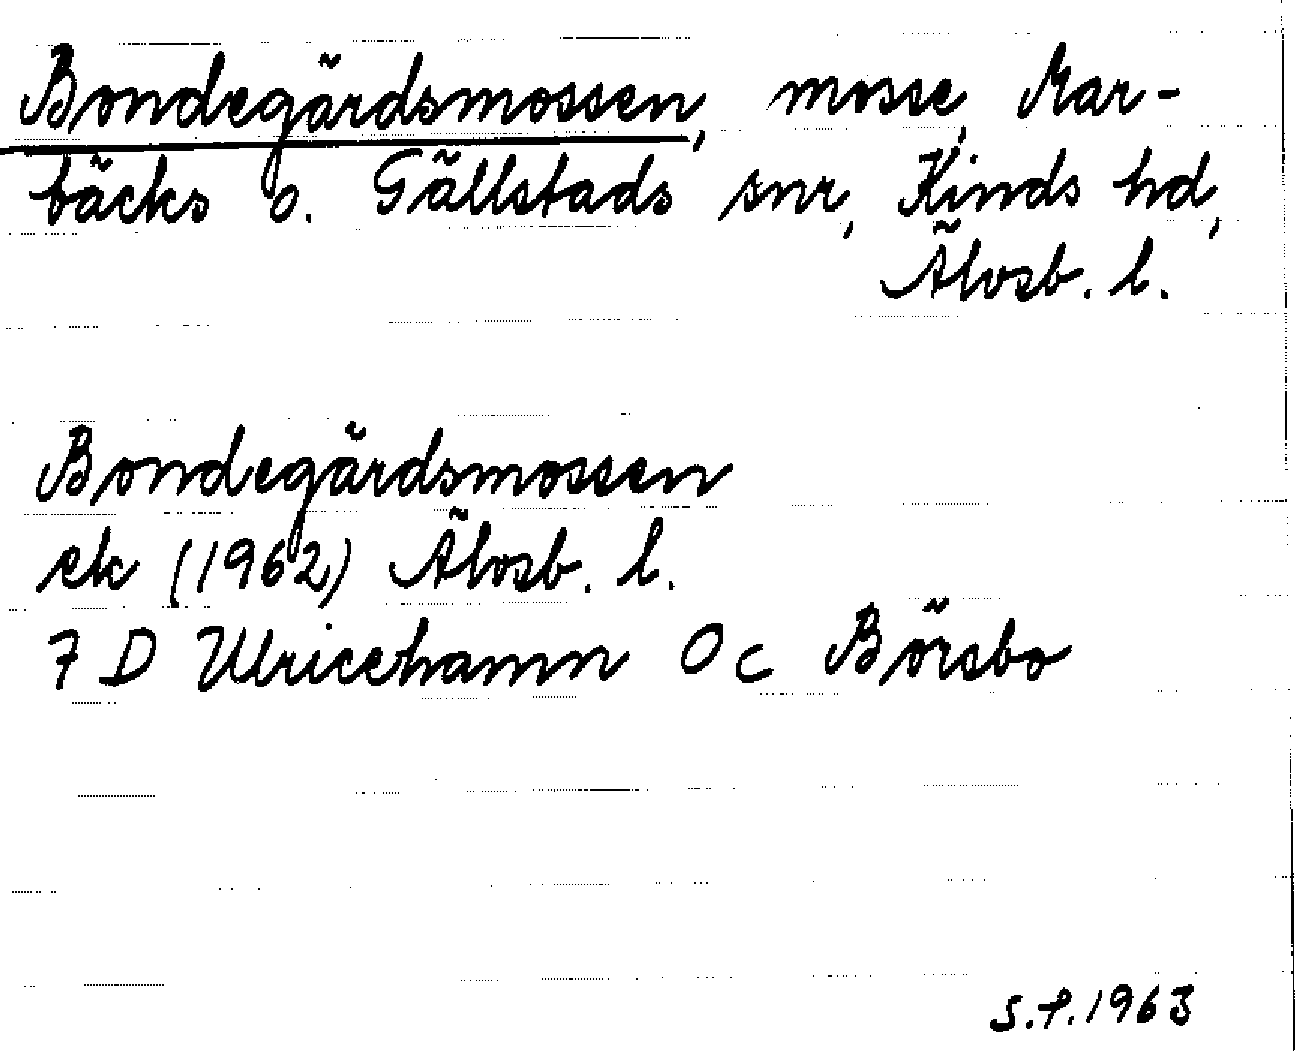 Bondegärdsmossen, mosse, Mar-
bäcks o. Gällstads snr, Kinds hd,
Älvsb. l.
Bondegärdsmossen
ek (1962) Älvsb. l.
7 D Ulricehamn 0 c Börsbo
S.P. 1963